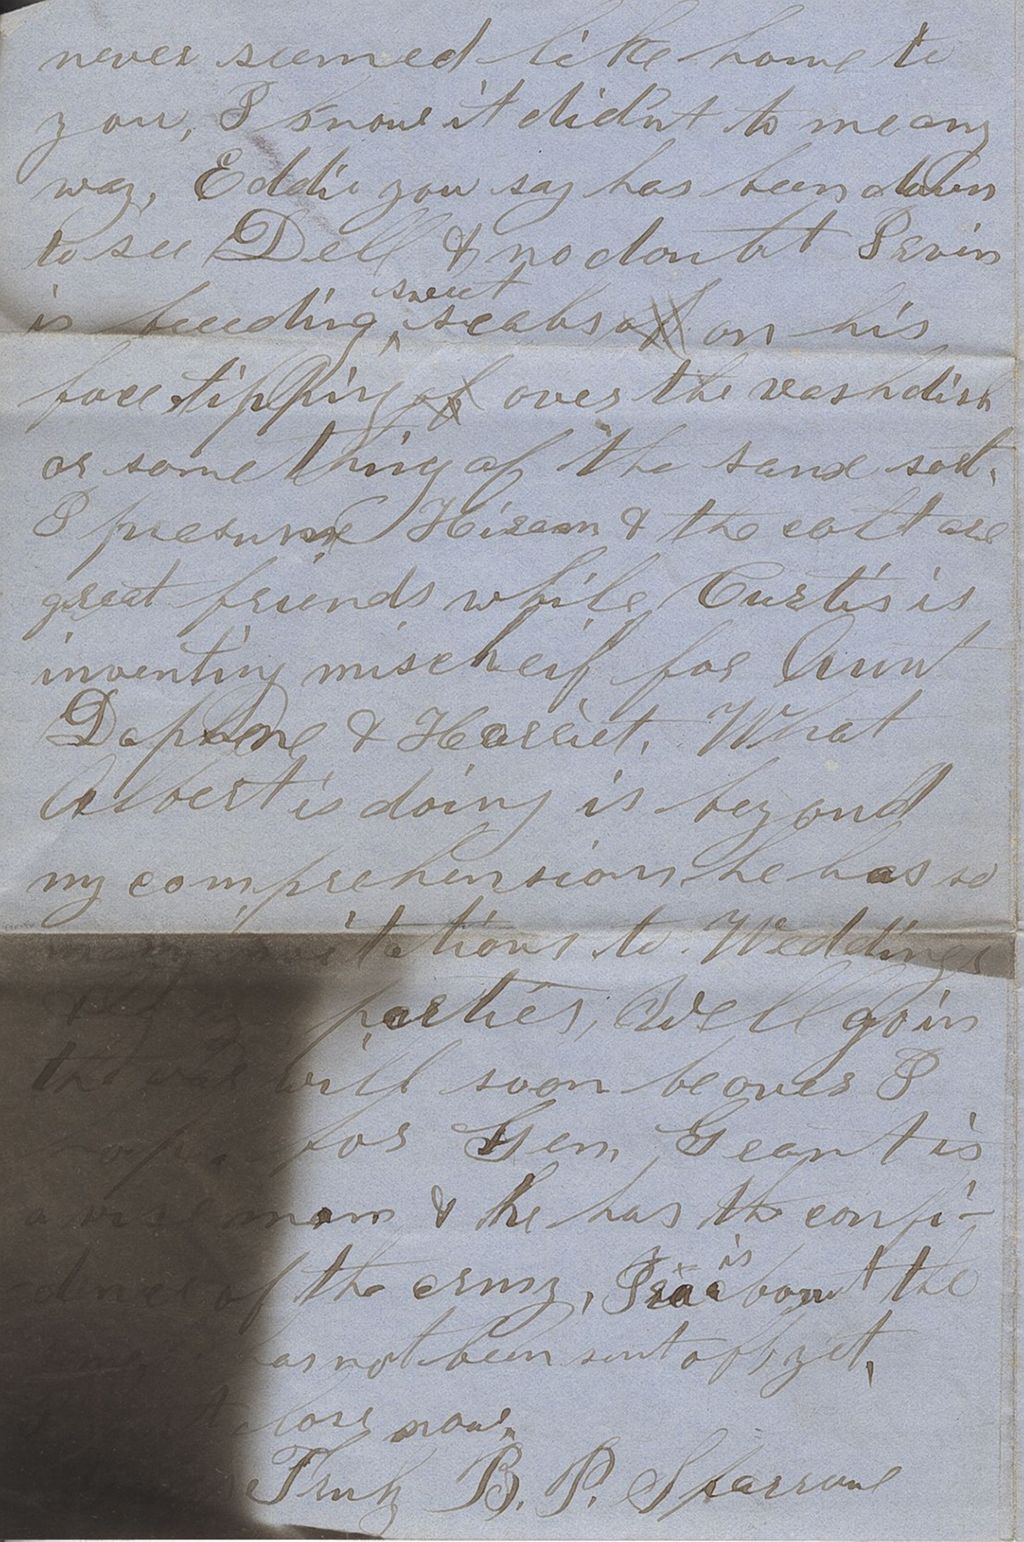 never seemed like home to
you, I know it didn't to me any
way, Eddie you say has been down
to see Dell & no doubt Irvin
is
sweet
scabs on his
face tipping over the washdish
or something of the same sort.
I presume Hiram & the colt are
great friends while Curtis is
inventing mischeif for Aunt
Daphne & Harriet. What
Albert is doing is beyond
my comprehension he has so
many invitations to Weddings
parties, Well goin
the war will soon be over I
hope for Gen Grant is
a wise man & he has the confi-
dence of the army, Ira is about the
same has not been sent off yet,
I must close now.
Truly B. P. Sparrow